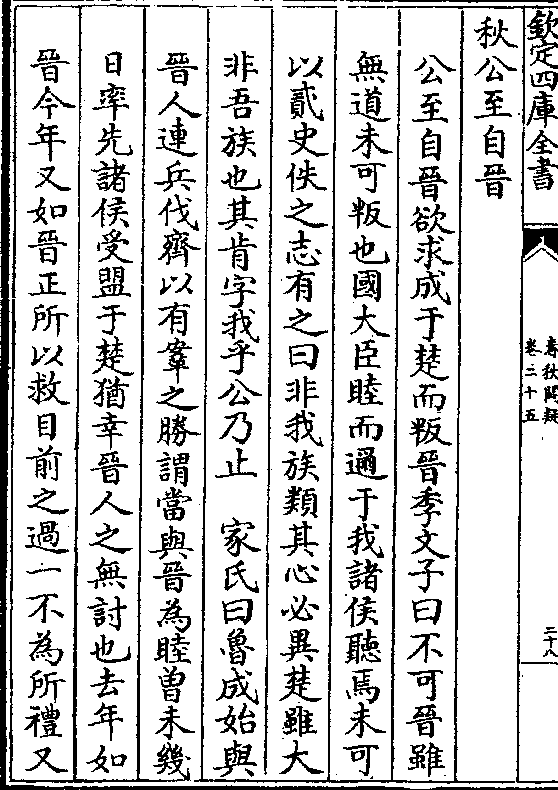 欽定四庫全書
春秋闕疑
卷二十五
二十八
秋公至自晉
公至自晉欲求成于楚而叛晉季文子曰不可晉雖
無道未可叛也國大臣睦而邇于我諸侯聽焉未可
以貳史佚之志有之曰非我族類其心必異楚雖大
非吾族也其肯字我乎公乃止　家氏曰魯成始與
晉人連兵伐齊以有鞌之勝謂當與晉為睦曽未幾
日率先諸侯受盟于楚猶幸晉人之無討也去年如
晉今年又如晉正所以救目前之過一不為所禮又